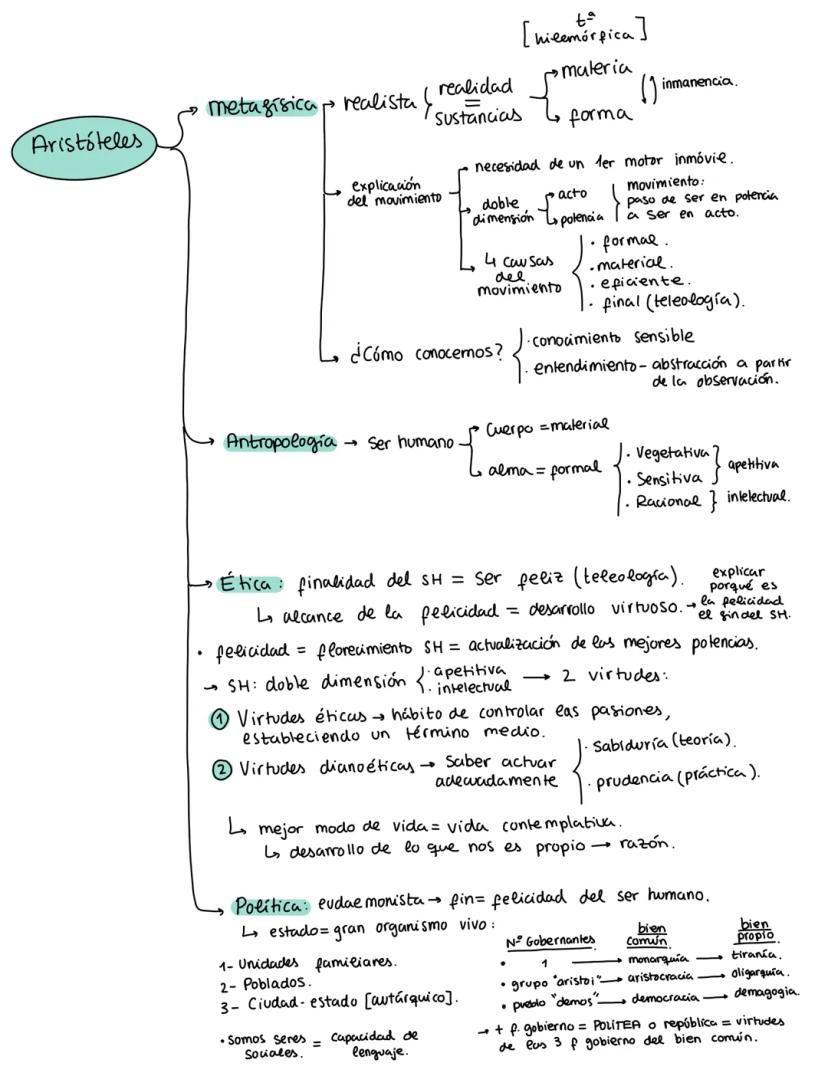 Aristóteles
[tª hilemórfica]
metafísica → realista { realidad = sustancias → materia
→ forma
inmanencia.
→ explicación del movimiento
→ necesidad de un 1er motor inmóvil.
→ doble dimensión → acto
→ potencia
movimiento:
paso de ser en potencia
a ser en acto.
→ 4 causas
del
movimiento
· formal.
· material.
· eficiente.
· final (teleología).
→ ¿Cómo conocemos?
· conocimiento sensible
· entendimiento - abstracción a partir
de la observación.
→ Antropología → Ser humano
→ Cuerpo = material
→ alma = formal
· Vegetativa
· Sensitiva } apetitiva
· Racional } intelectual.
→ Ética: finalidad del SH = Ser feliz (teleología).
↳ alcance de la felicidad = desarrollo virtuoso. →
explicar
porqué es
la felicidad
el fin del SH.
• felicidad = florecimiento SH = actualización de las mejores potencias.
→ SH: doble dimensión { · apetitiva
· intelectual → 2 virtudes:
① Virtudes éticas → hábito de controlar las pasiones,
estableciendo un término medio.
② Virtudes dianoéticas → Saber actuar
adecuadamente
· sabiduría (teoría).
· prudencia (práctica).
↳ mejor modo de vida = vida contemplativa.
↳ desarrollo de lo que nos es propio → razón.
→ Política: eudaemonista → fin = felicidad del ser humano.
↳ estado = gran organismo vivo:
1- Unidades familiares.
2- Poblados.
3- Ciudad-estado [autárquico].
• Somos seres sociales. = Capacidad de lenguaje.
Nº Gobernantes. bien común. bien propio.
• 1 → monarquía → tiranía.
• grupo "aristoi" → aristocracia → oligarquía.
• pueblo "demos" → democracia → demagogia.
→ + f. gobierno = POLITEA o república = virtudes
de las 3 f gobierno del bien común.